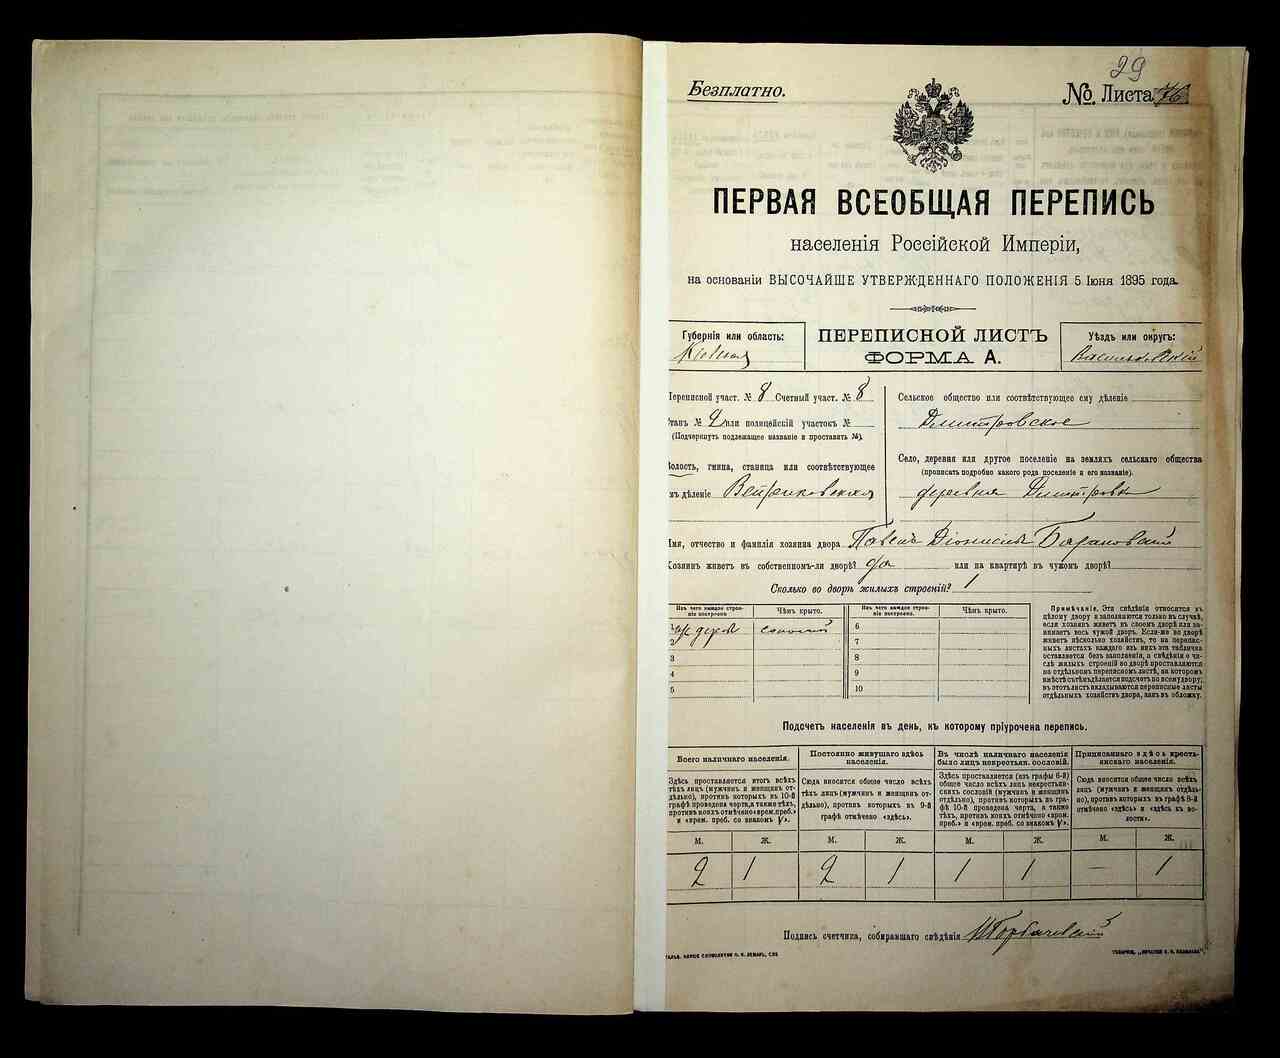 29
Безплатно.
№ Листа 76
ПЕРВАЯ ВСЕОБЩАЯ ПЕРЕПИСЬ
населенія Россійской Имперіи,
на основаніи ВЫСОЧАЙШЕ УТВЕРЖДЕННАГО ПОЛОЖЕНІЯ 5 Іюня 1895 года.
Губернія или область:
Кіевская
ПЕРЕПИСНОЙ ЛИСТЪ
ФОРМА А.
Уѣздъ или округъ:
Васильковскій
Переписной участ. № 8 Счетный участ. № 8
Станъ № 2 или полицейскій участокъ №
(Подчеркнуть подлежащее названіе и проставить №).
Волость, гмина, станица или соотвѣтствующее
имъ дѣленіе
Сельское общество или соотвѣтствующее ему дѣленіе
Дмитровское
Село, деревня или другое поселеніе на земляхъ сельскаго общества
(прописать подробно какого рода поселеніе и его названіе).
деревня Дмитровка
Имя, отчество и фамилія хозяина двора Павелъ Діонисіевъ Барановскій
Хозяинъ живетъ въ собственномъ-ли дворѣ? да или на квартирѣ въ чужомъ дворѣ?
Сколько во дворѣ жилыхъ строеній? 1
Изъ чего каждое строе-
ніе построено.
Чѣмъ крыто.
Изъ чего каждое строе-
ніе построено.
Чѣмъ крыто.
изъ дерев соломой
2
3
4
5
6
7
8
9
10
Примѣчаніе. Эти свѣдѣнія относятся къ
цѣлому двору и заполняются только въ случаѣ,
если хозяинъ живетъ въ своемъ дворѣ или за-
нимаетъ весь чужой дворъ. Если-же во дворѣ
живетъ нѣсколько хозяйствъ, то на перепис-
ныхъ листахъ каждаго изъ нихъ эта табличка
оставляется безъ заполненія, а свѣдѣнія о чи-
слѣ жилыхъ строеній во дворѣ проставляются
на отдѣльномъ переписномъ листѣ, на которомъ
вмѣстѣ съ тѣмъ дѣлается подсчетъ по всему двору;
въ этотъ листъ вкладываются переписные листы
отдѣльныхъ хозяйствъ двора, какъ въ обложку.
Подсчетъ населенія въ день, къ которому пріурочена перепись.
Всего наличнаго населенія.
Постоянно живущаго здѣсь
населенія.
Въ числѣ наличнаго населенія
было лицъ некрестьян. сословій.
Приписаннаго здѣсь кресть-
янскаго населенія.
Здѣсь проставляется итогъ всѣхъ
тѣхъ лицъ (мужчинъ и женщинъ от-
дѣльно), противъ которыхъ въ 10-й
графѣ проведена черта, а также тѣхъ,
противъ коихъ отмѣчено «врем. преб.»
и «врем. преб. со знакомъ V».
Сюда вносится общее число всѣхъ
тѣхъ лицъ (мужчинъ и женщинъ от-
дѣльно), противъ которыхъ въ 9-й
графѣ отмѣчено «здѣсь».
Здѣсь проставляется (изъ графы 6-й)
общее число всѣхъ лицъ некрестьян-
скихъ сословій (мужчинъ и женщинъ
отдѣльно), противъ которыхъ въ гра-
фѣ 10-й проведена черта, а также
тѣхъ, противъ коихъ отмѣчено «врем.
преб.» и «врем. преб. со знакомъ V».
Сюда вносится общее число всѣхъ
лицъ (мужчинъ и женщинъ отдѣль-
но), противъ которыхъ въ графѣ 8-й
отмѣчено «здѣсь» и «здѣсь къ во-
лости».
М. Ж. М. Ж. М. Ж. М. Ж.
2 1 2 1 1 1 — 1
Подпись счетчика, собиравшаго свѣдѣнія